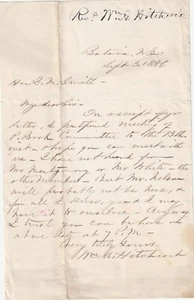 Rev. Wm H. Hitchcock
Batavia, N.Y.
Sept 3. 1886
Hon E. McSmith
My dear Sir:-
On receipt of yr
letter, I postponed meeting of
P. Book Committee to the 13th
inst. I hope you can meet with
us - I have not heard from
Mr Montgomery or Mr White - the
other members. But Mr Nelson
will probably not be here, &
for all I know, you & I may
have it to ourselves - Anyway
I trust you can be here on
above date at 7 P.M -
Very truly yours,
Wm. H. Hitchcock